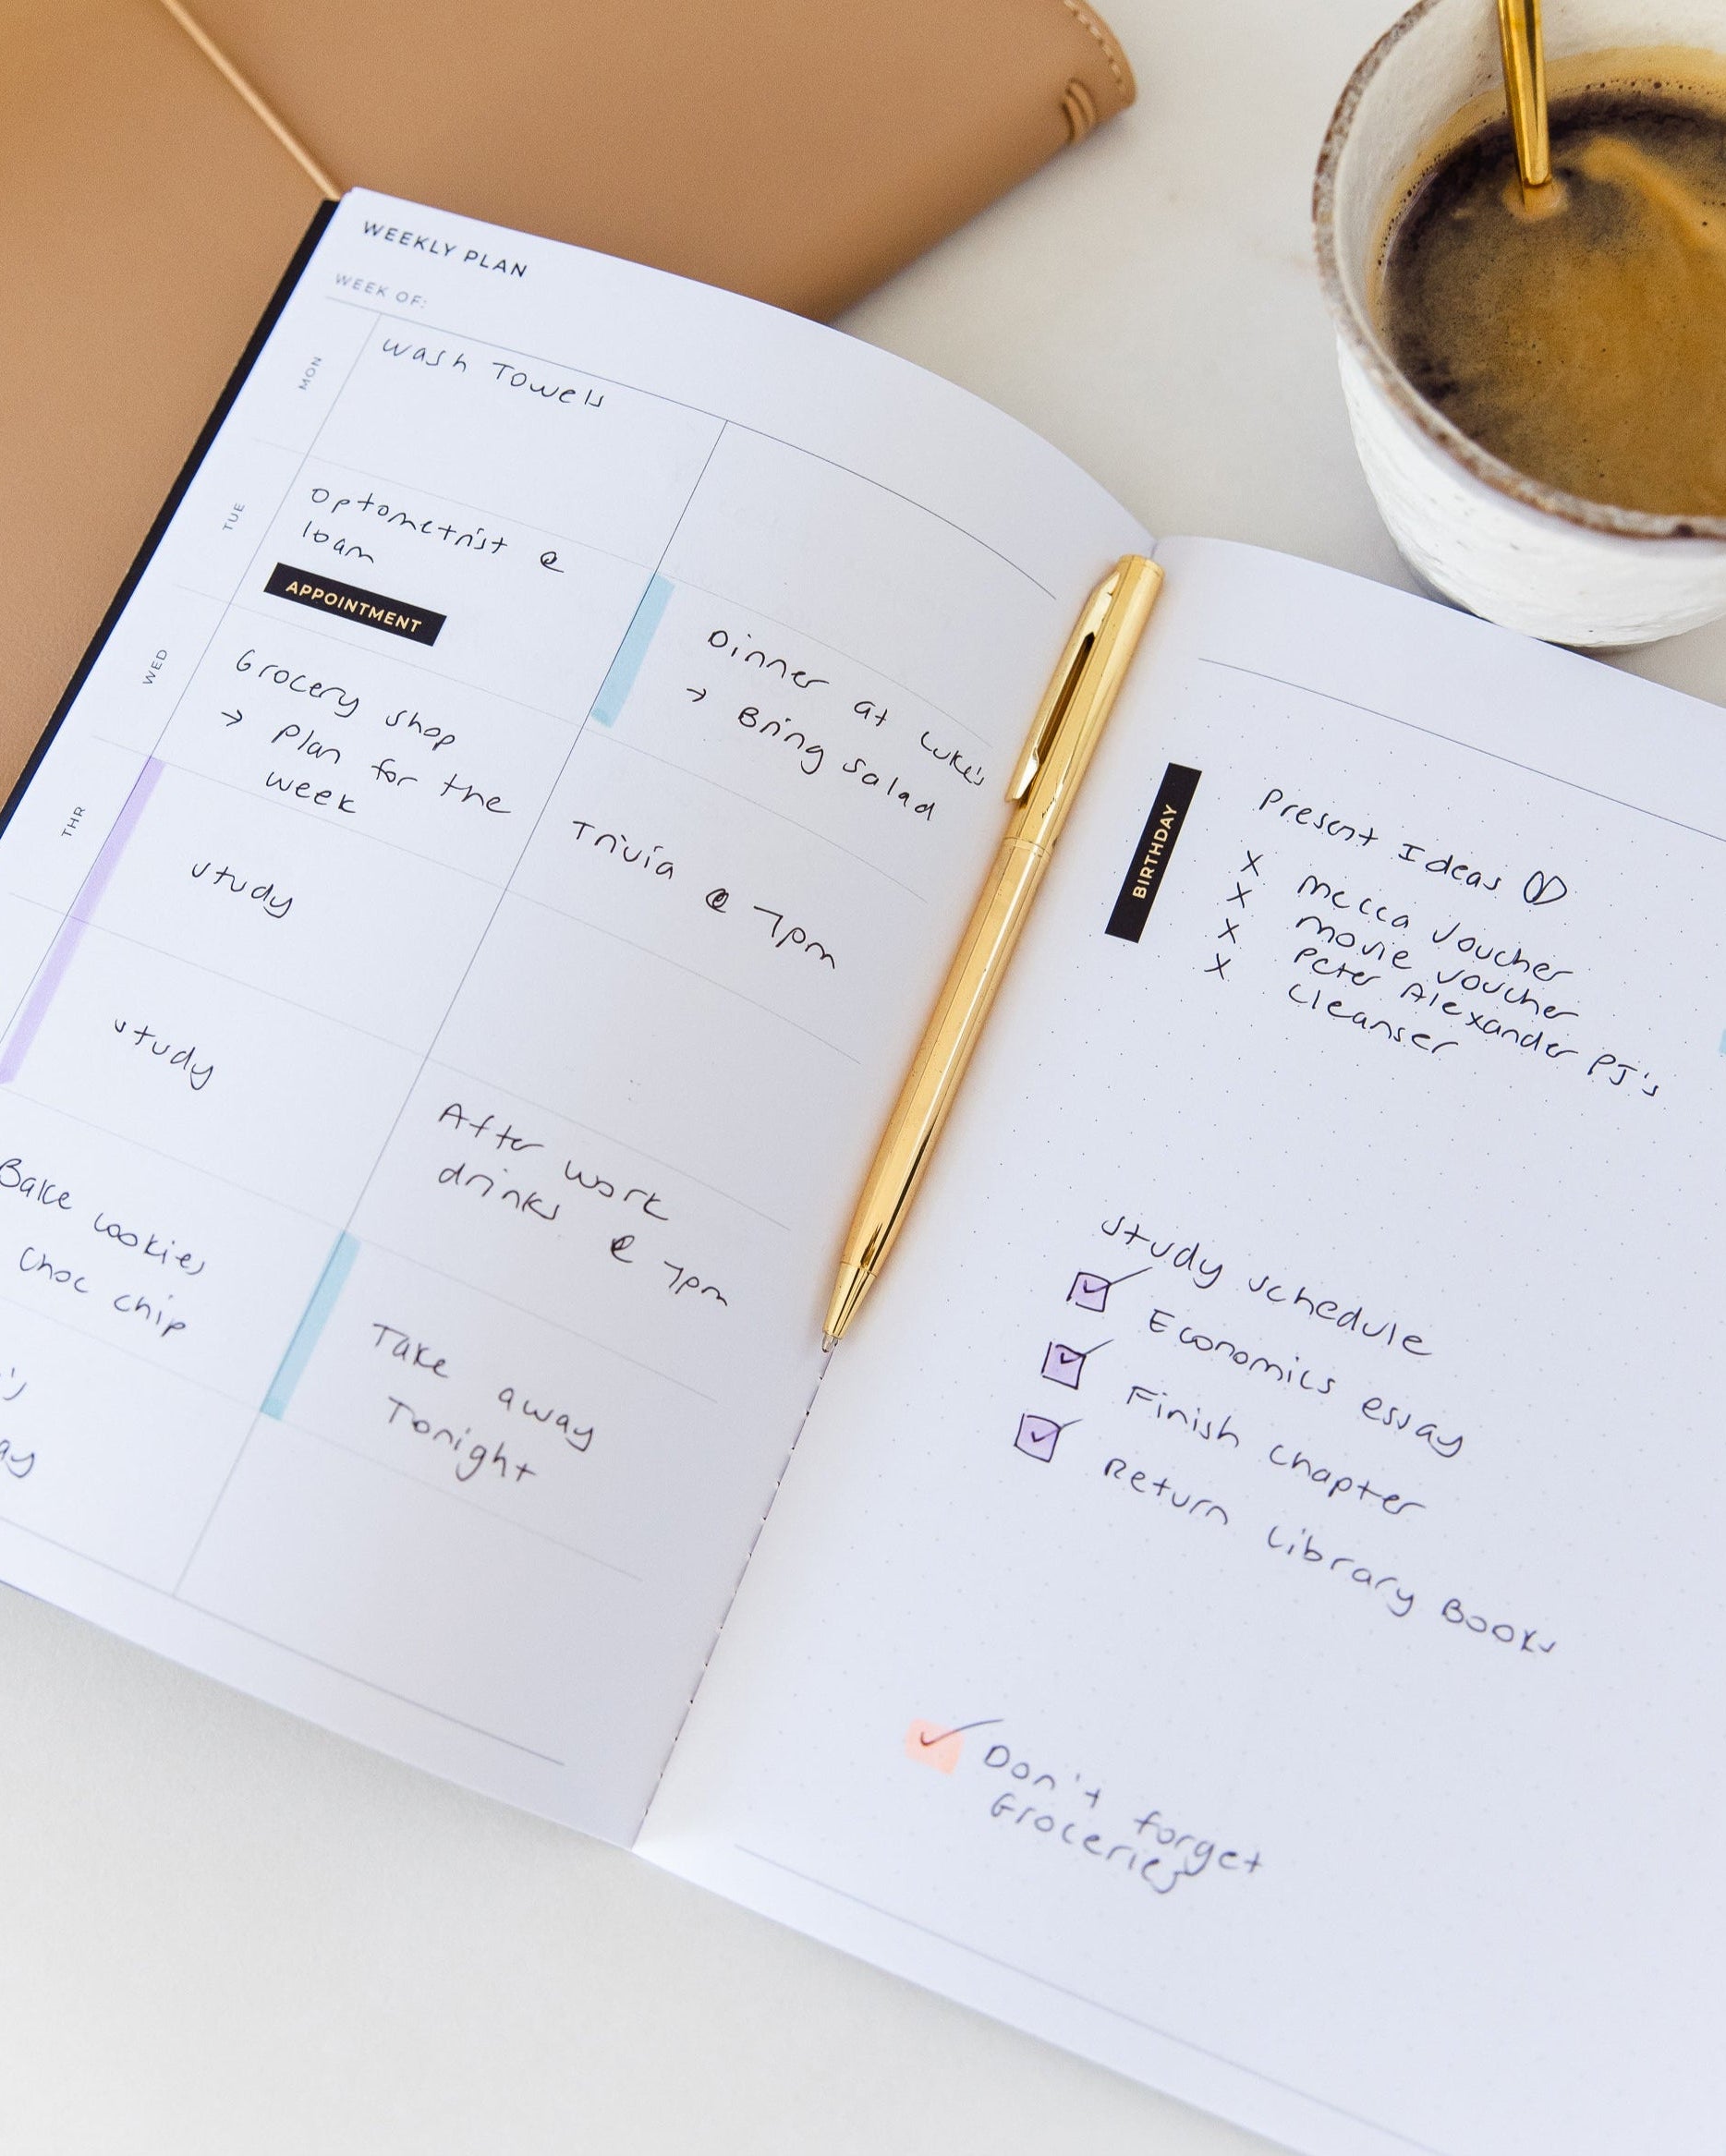 WEEKLY PLAN
WEEK OF:
MON
Wash Towels
TUE
Optometrist @
10am
APPOINTMENT
WED
Grocery shop
→ Plan for the
week
THR
study
study
Bake cookies
choc chip
Dinner at Luke's
→ Bring salad
Trivia @ 7pm
After work
drinks @ 7pm
Take away
Tonight
BIRTHDAY
Present Ideas
X Mecca Voucher
X Movie Voucher
X Peter Alexander PJ's
X Cleanser
study schedule
Economics essay
Finish chapter
Return Library Books
Don't forget
Groceries